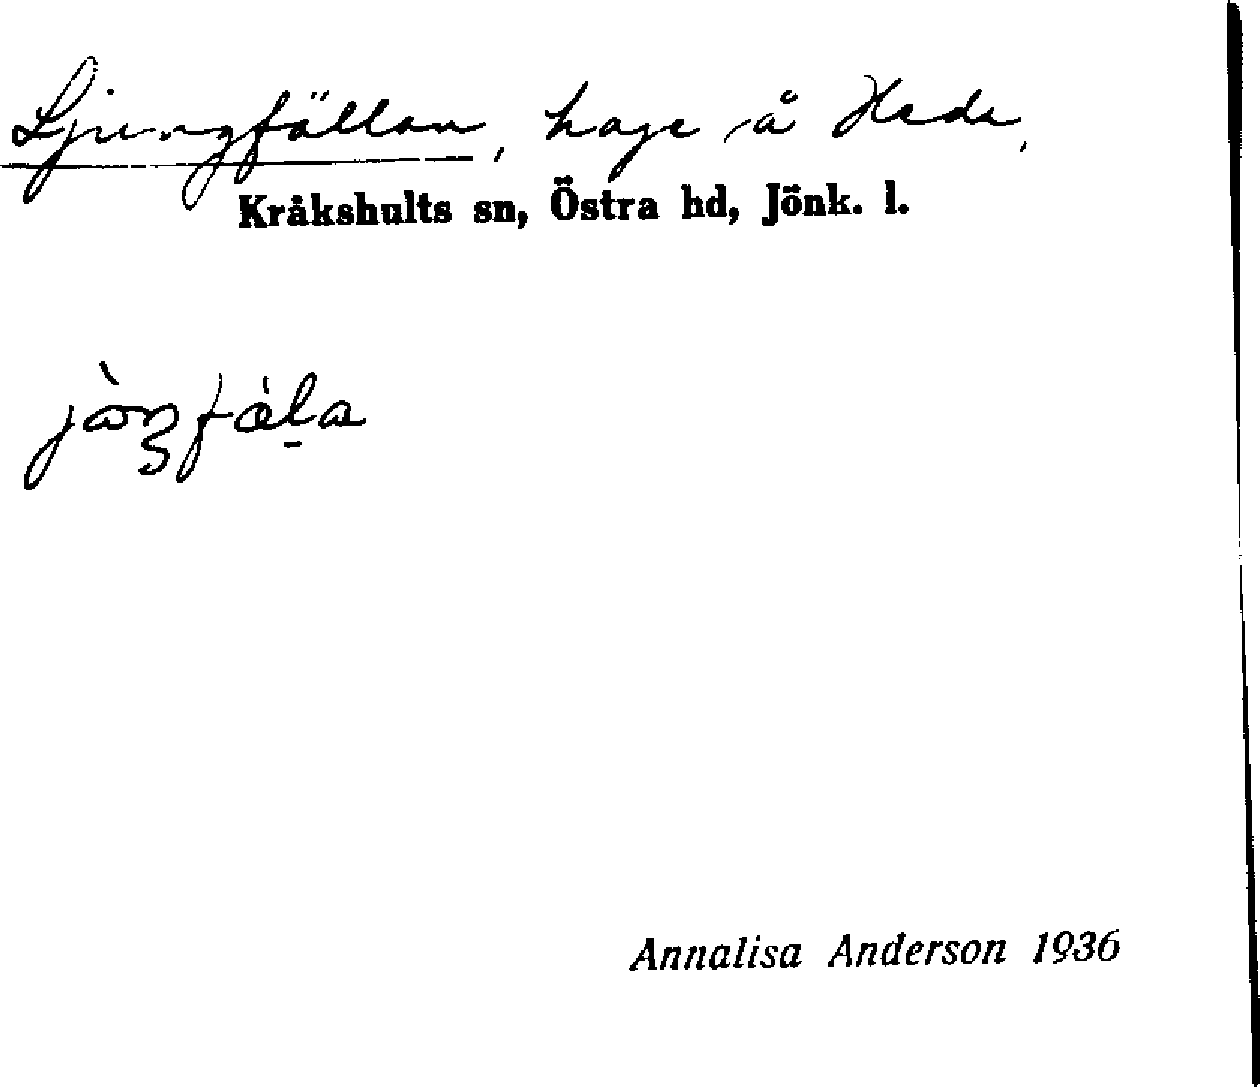 Ljungfällan, hage å Heda,
Kråkshults sn, Östra hd, Jönk. l.
Annalisa Anderson 1936